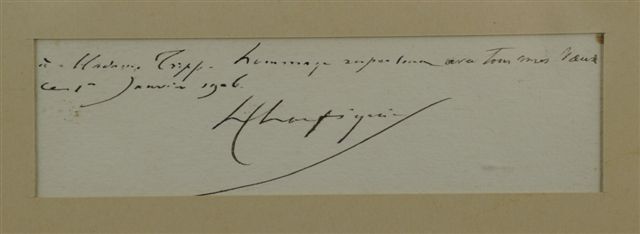 à Madame Tripp. hommage respectueux avec tous mes vœux
ce 1er Janvier 1906.